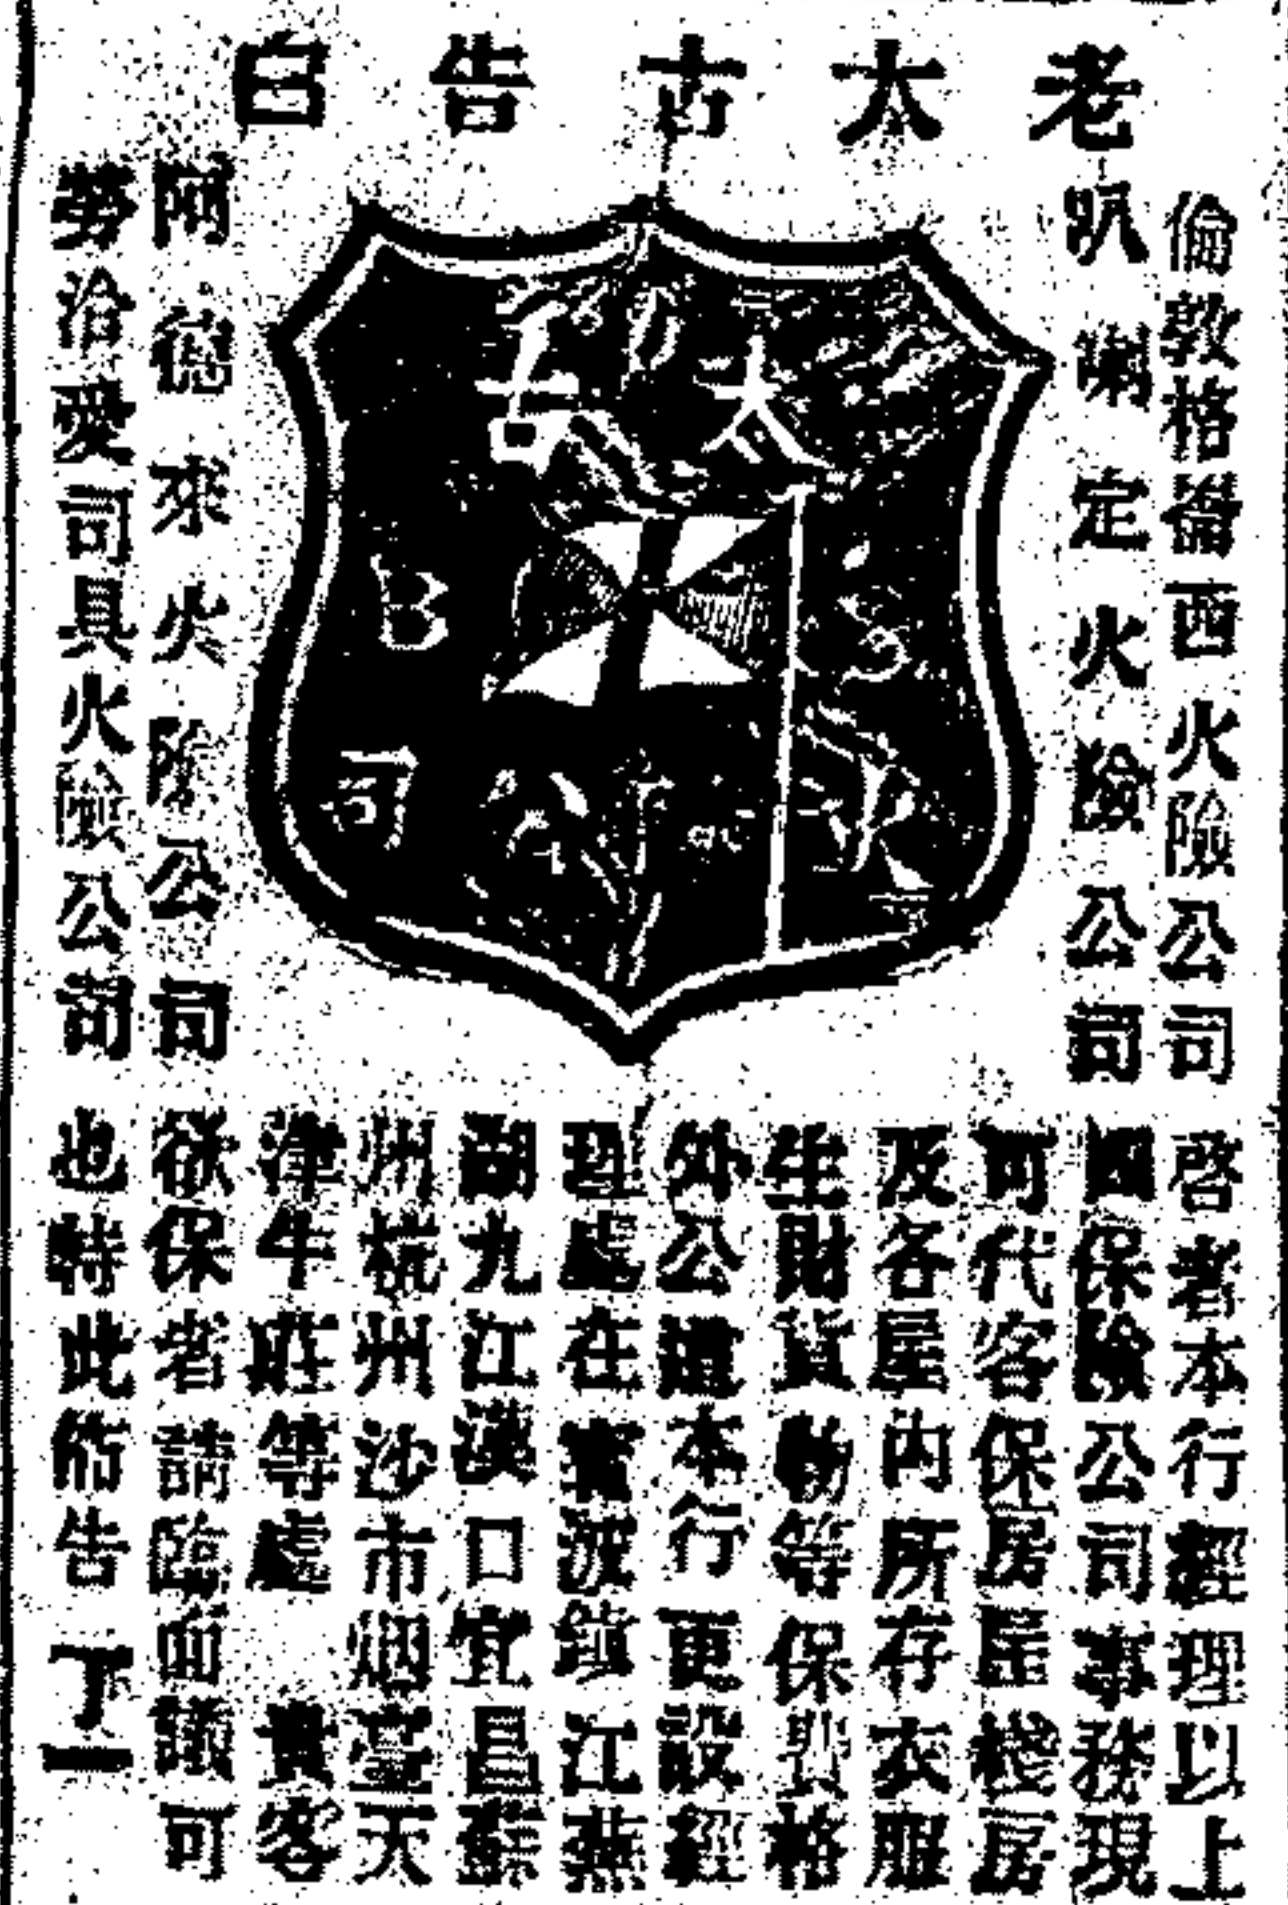 老太古告白
倫敦格崙西火險公司
叭喇定火險公司
太古
B & S
火
司
阿德來火險公司
勞洽愛司具火險公司
啓者本行經理以上
四保險公司事務現
可代客保房屋棧房
及各屋內所存衣服
生財貨物等保費格
外公道本行更設經
理處在寗波鎮江蕪
湖九江漢口宜昌蘇
州杭州沙市烟臺天
津牛莊等處 貴客
欲保者請臨面議可
也特此佈告 丁一